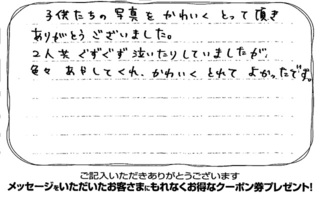 子供たちの写真をかわいくとって頂き
ありがとうございました。
2人共ぐずぐず泣いたりしていましたが、
色々あやしてくれ、かわいくとれてよかったです。
ご記入いただきありがとうございます
メッセージをいただいたお客さまにもれなくお得なクーポン券プレゼント!